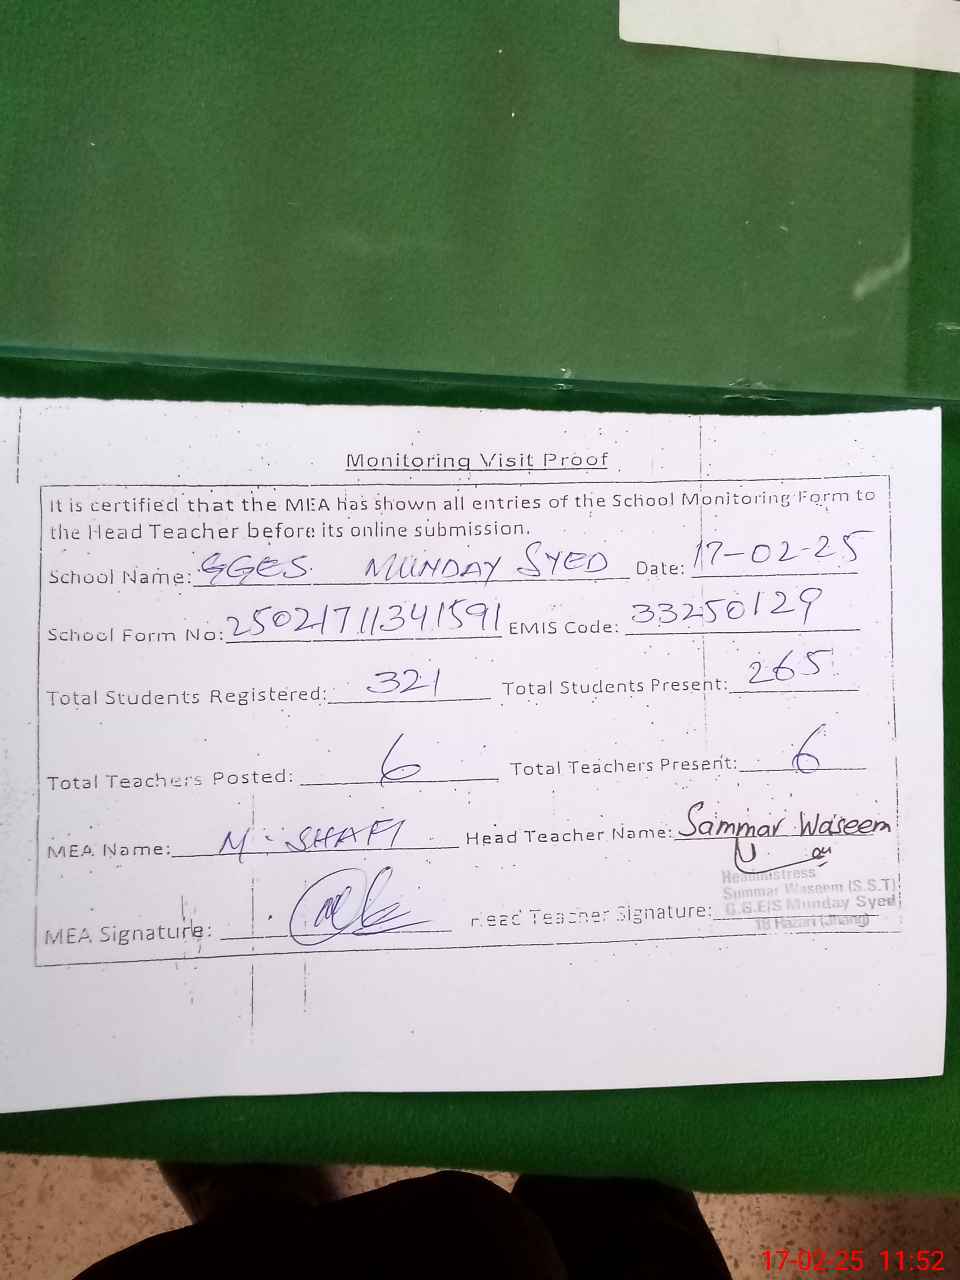 Monitoring Visit Proof
It is certified that the MEA has shown all entries of the School Monitoring Form to
the Head Teacher before its online submission.
School Name: GGES. MUNDAY SYED Date: 17-02-25
School Form No: 25021711341591 EMIS Code: 33250129
Total Students Registered: 321 Total Students Present: 265
Total Teachers Posted: 6 Total Teachers Present: 6
MEA Name: M. SHAFI Head Teacher Name: Sammar Waseem
Headmistress
Summar Waseem (S.S.T)
MEA Signature: Head Teacher Signature: G.G.E/S Munday Syed
18 Hazari (Jhang)
17-02-25 11:52